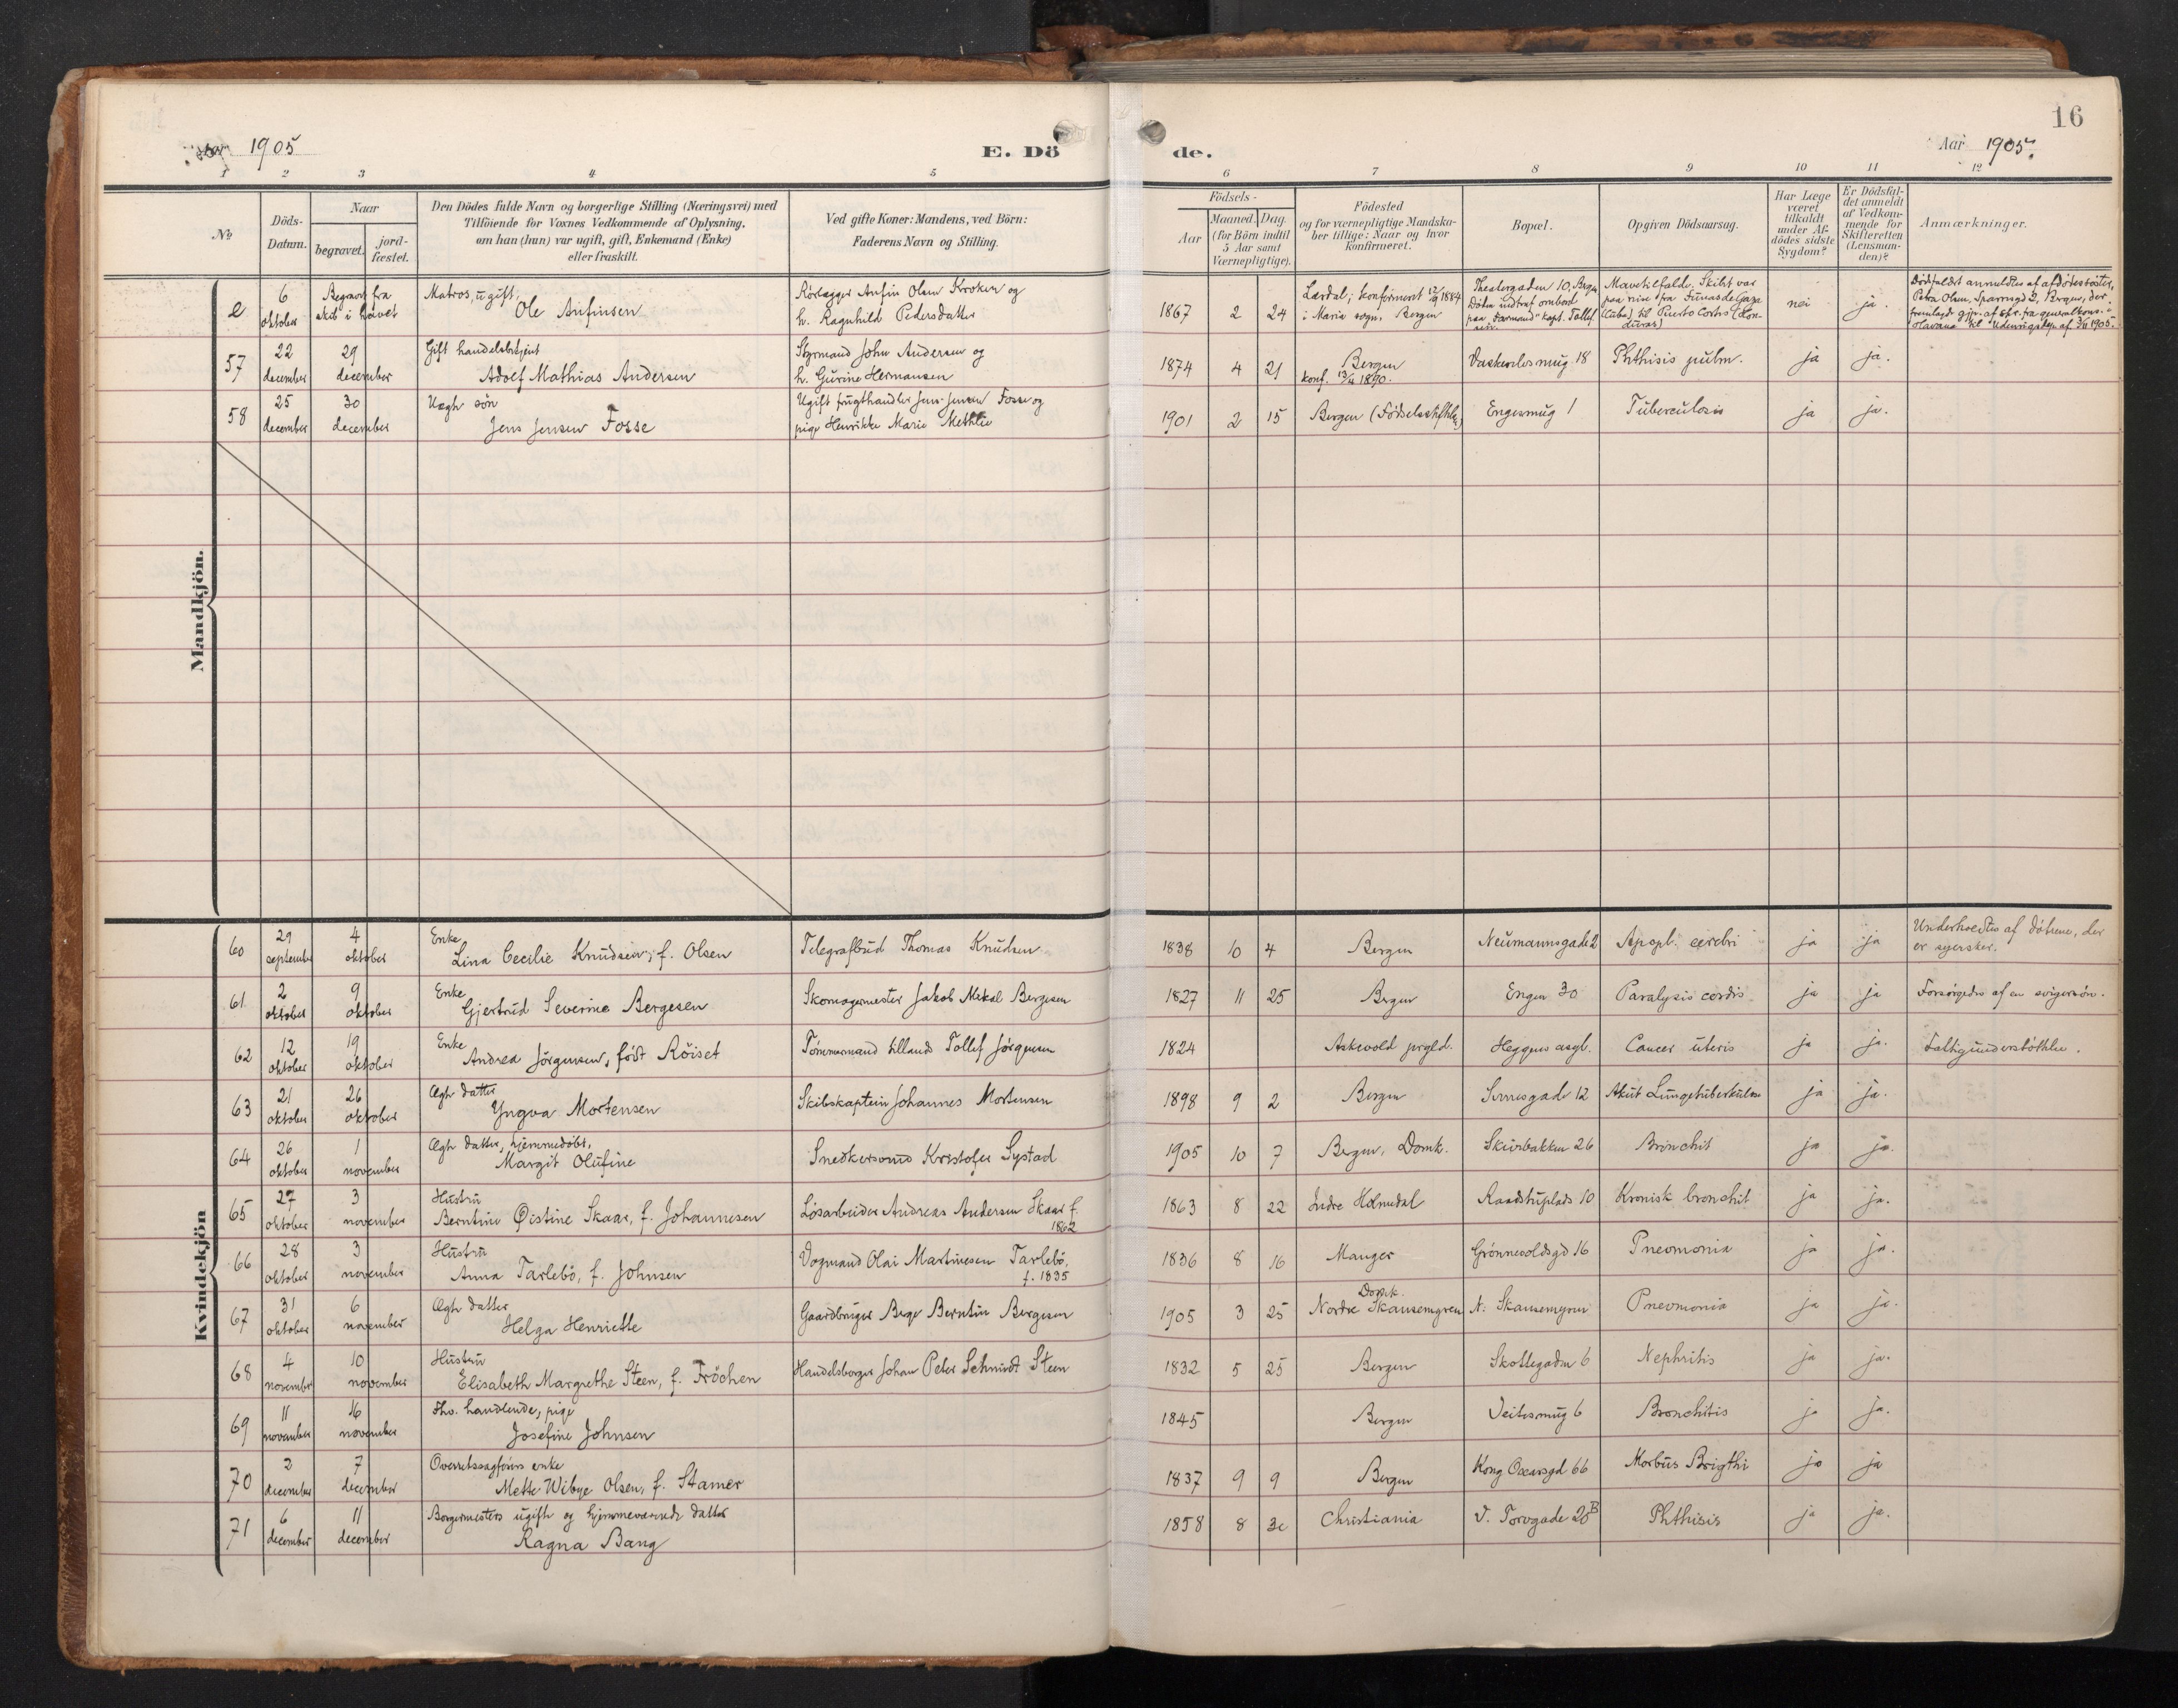 16
Aar 1905
E. Dö
de.
Aar 1905.
1 2 3 4 5 6 7 8 9 10 11 12
No
Döds-Datum.
Naar
begravet.
jord-fæstet.
Den Dödes fulde Navn og borgerlige Stilling (Næringsvei) med
Tilföiende for Voxnes Vedkommende af Oplysning,
om han (hun) var ugift, gift, Enkemand (Enke)
eller fraskilt.
Ved gifte Koner: Mandens, ved Börn:
Faderens Navn og Stilling.
Födsels-
Aar
Maaned. Dag.
(for Börn indtil
5 Aar samt
Værnepligtige).
Födested
og for værnepligtige Mandska-
ber tillige: Naar og hvor
konfirmeret.
Bopæl.
Opgiven Dödsaarsag.
Har Læge
været
tilkaldt
under Af-
dödes sidste
Sygdom?
Er Dödsfal-
det anmeldt
af Vedkom-
mende for
Skifteretten
(Lensman-
den)?
Anmærkninger.
Mandkjön.
e 6 oktober Begravet fra skib i havet Matros, ugift, Ole Anfinsen Rörlægger Anfin Olsen Kroken og h. Ragnhild Pedersdatter 1867 2 24 Lærdal; konfirmeret 12/9 1884 i Maria sogn, Bergen Theatergaden 10, Bergen Döden indtraf ombord paa "Darmand" kapt. Tollef Mavetilfælde. Skibet var paa reise fra (Cuba) til Puerto Cortes (Honduras) nei ja. Dödsfaldet anmeldtes af afdödes söster, Petra Olsen, Bergen, der fremlagde af generalkons. i Havana til af 3/11 1905.
57 22 december 29 december Gift handelsbetjent Adolf Mathias Andersen Styrmand John Andersen og h. Gurine Hermansen 1874 4 21 Bergen konf. 13/4 1890. Vaskerelvsmug. 18 Phthisis pulm. ja ja.
58 25 december 30 december Uægte sön Jens Jensen Fosse Ugift frugthandler Jens Jensen Fosse og pige Henrikke Marie Methlie 1901 2 15 Bergen (Födselsstiftelsen) Engesmug 1 Tuberculosis ja ja.
Kvindekjön
60 29 september 4 oktober Enke Lina Cecilie Knudsen, f. Olsen Telegrafbud Thomas Knudsen 1838 10 4 Bergen Neumannsgade 2 Apopl. cerebri ja ja Underholdtes af dötrene, der er syersker.
61 2 oktober 9 oktober Enke Gjertrud Severine Bergesen Skomagermester Jakob Mekal Bergesen 1827 11 25 Bergen Engen 30 Paralysis cordis ja ja Forsörgedes af en svigersön.
62 12 oktober 19 oktober Enke Andrea Jörgensen, födt Röiset Tömmermand tillands Tollef Jörgensen 1824 Askevold prgld. Hegges asyl. Cancer uteris ja ja. Fattigunderstöttelse.
63 21 oktober 26 oktober Ægte datter Yngva Mortensen Skibskaptein Johannes Mortensen 1898 9 2 Bergen Sverresgade 12 Akut Lungetuberkulose ja ja.
64 26 oktober 1 november Ægte datter, hjemmedöbt, Margit Olufine Snedkersvend Kristofer Systad 1905 10 7 Bergen, Domk. Skivebakken 26 Bronchit ja ja.
65 27 oktober 3 november Hustru Berntine Öistine Skaar, f. Johannesen Lösarbeider Andreas Andersen Skaar f. 1862 1863 8 22 Indre Holmedal Raadstuplads 10 Kronisk bronchit ja ja.
66 28 oktober 3 november Hustru Anna Tarlebö, f. Johnsen Vognmand Olai Martinesen Tarlebö, f. 1835 1836 8 16 Manger Grönnevoldsgd 16 Pnevmonia ja ja.
67 31 oktober 6 november Ægte datter Helga Henriette Gaardbruger Berntin Bergesen 1905 3 25 Domk. Nordre Skansemyren N. Skansemyren Pnevmonia ja ja.
68 4 november 10 november Hustru Elisabeth Margrethe Steen, f. Fröchen Handelsborger Johan Peter Schmidt Steen 1832 5 25 Bergen Skottegaden 6 Nephritis ja ja.
69 11 november 16 november Fhv. handlende, pige Josefine Johnsen 1845 Bergen Veitesmug 6 Bronchitis ja ja.
70 2 december 7 december Overretssagförers enke Mette Wibye Olsen, f. Stamer 1837 9 9 Bergen Kong Oscarsgd 66 Morbus Brigthi ja ja
71 6 december 11 december Borgermesters ugifte og hjemmeværende datter Ragna Bang 1858 8 30 Christiania V. Torvgade 20B Phthisis ja ja.